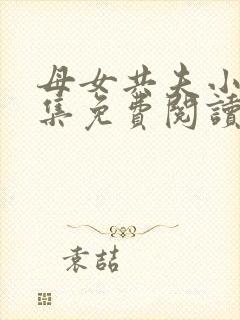 母女共夫小
集免費閱讀
袁喆